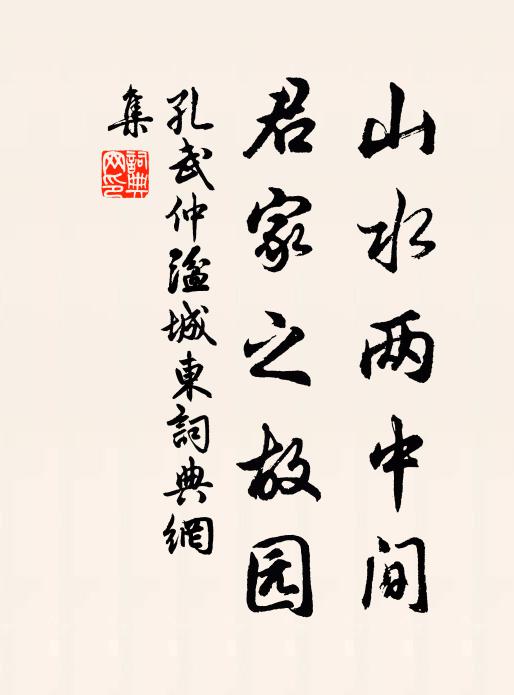 山水两中间
君家之故园
孔武仲湓城東詞典網
集
詞典
网印